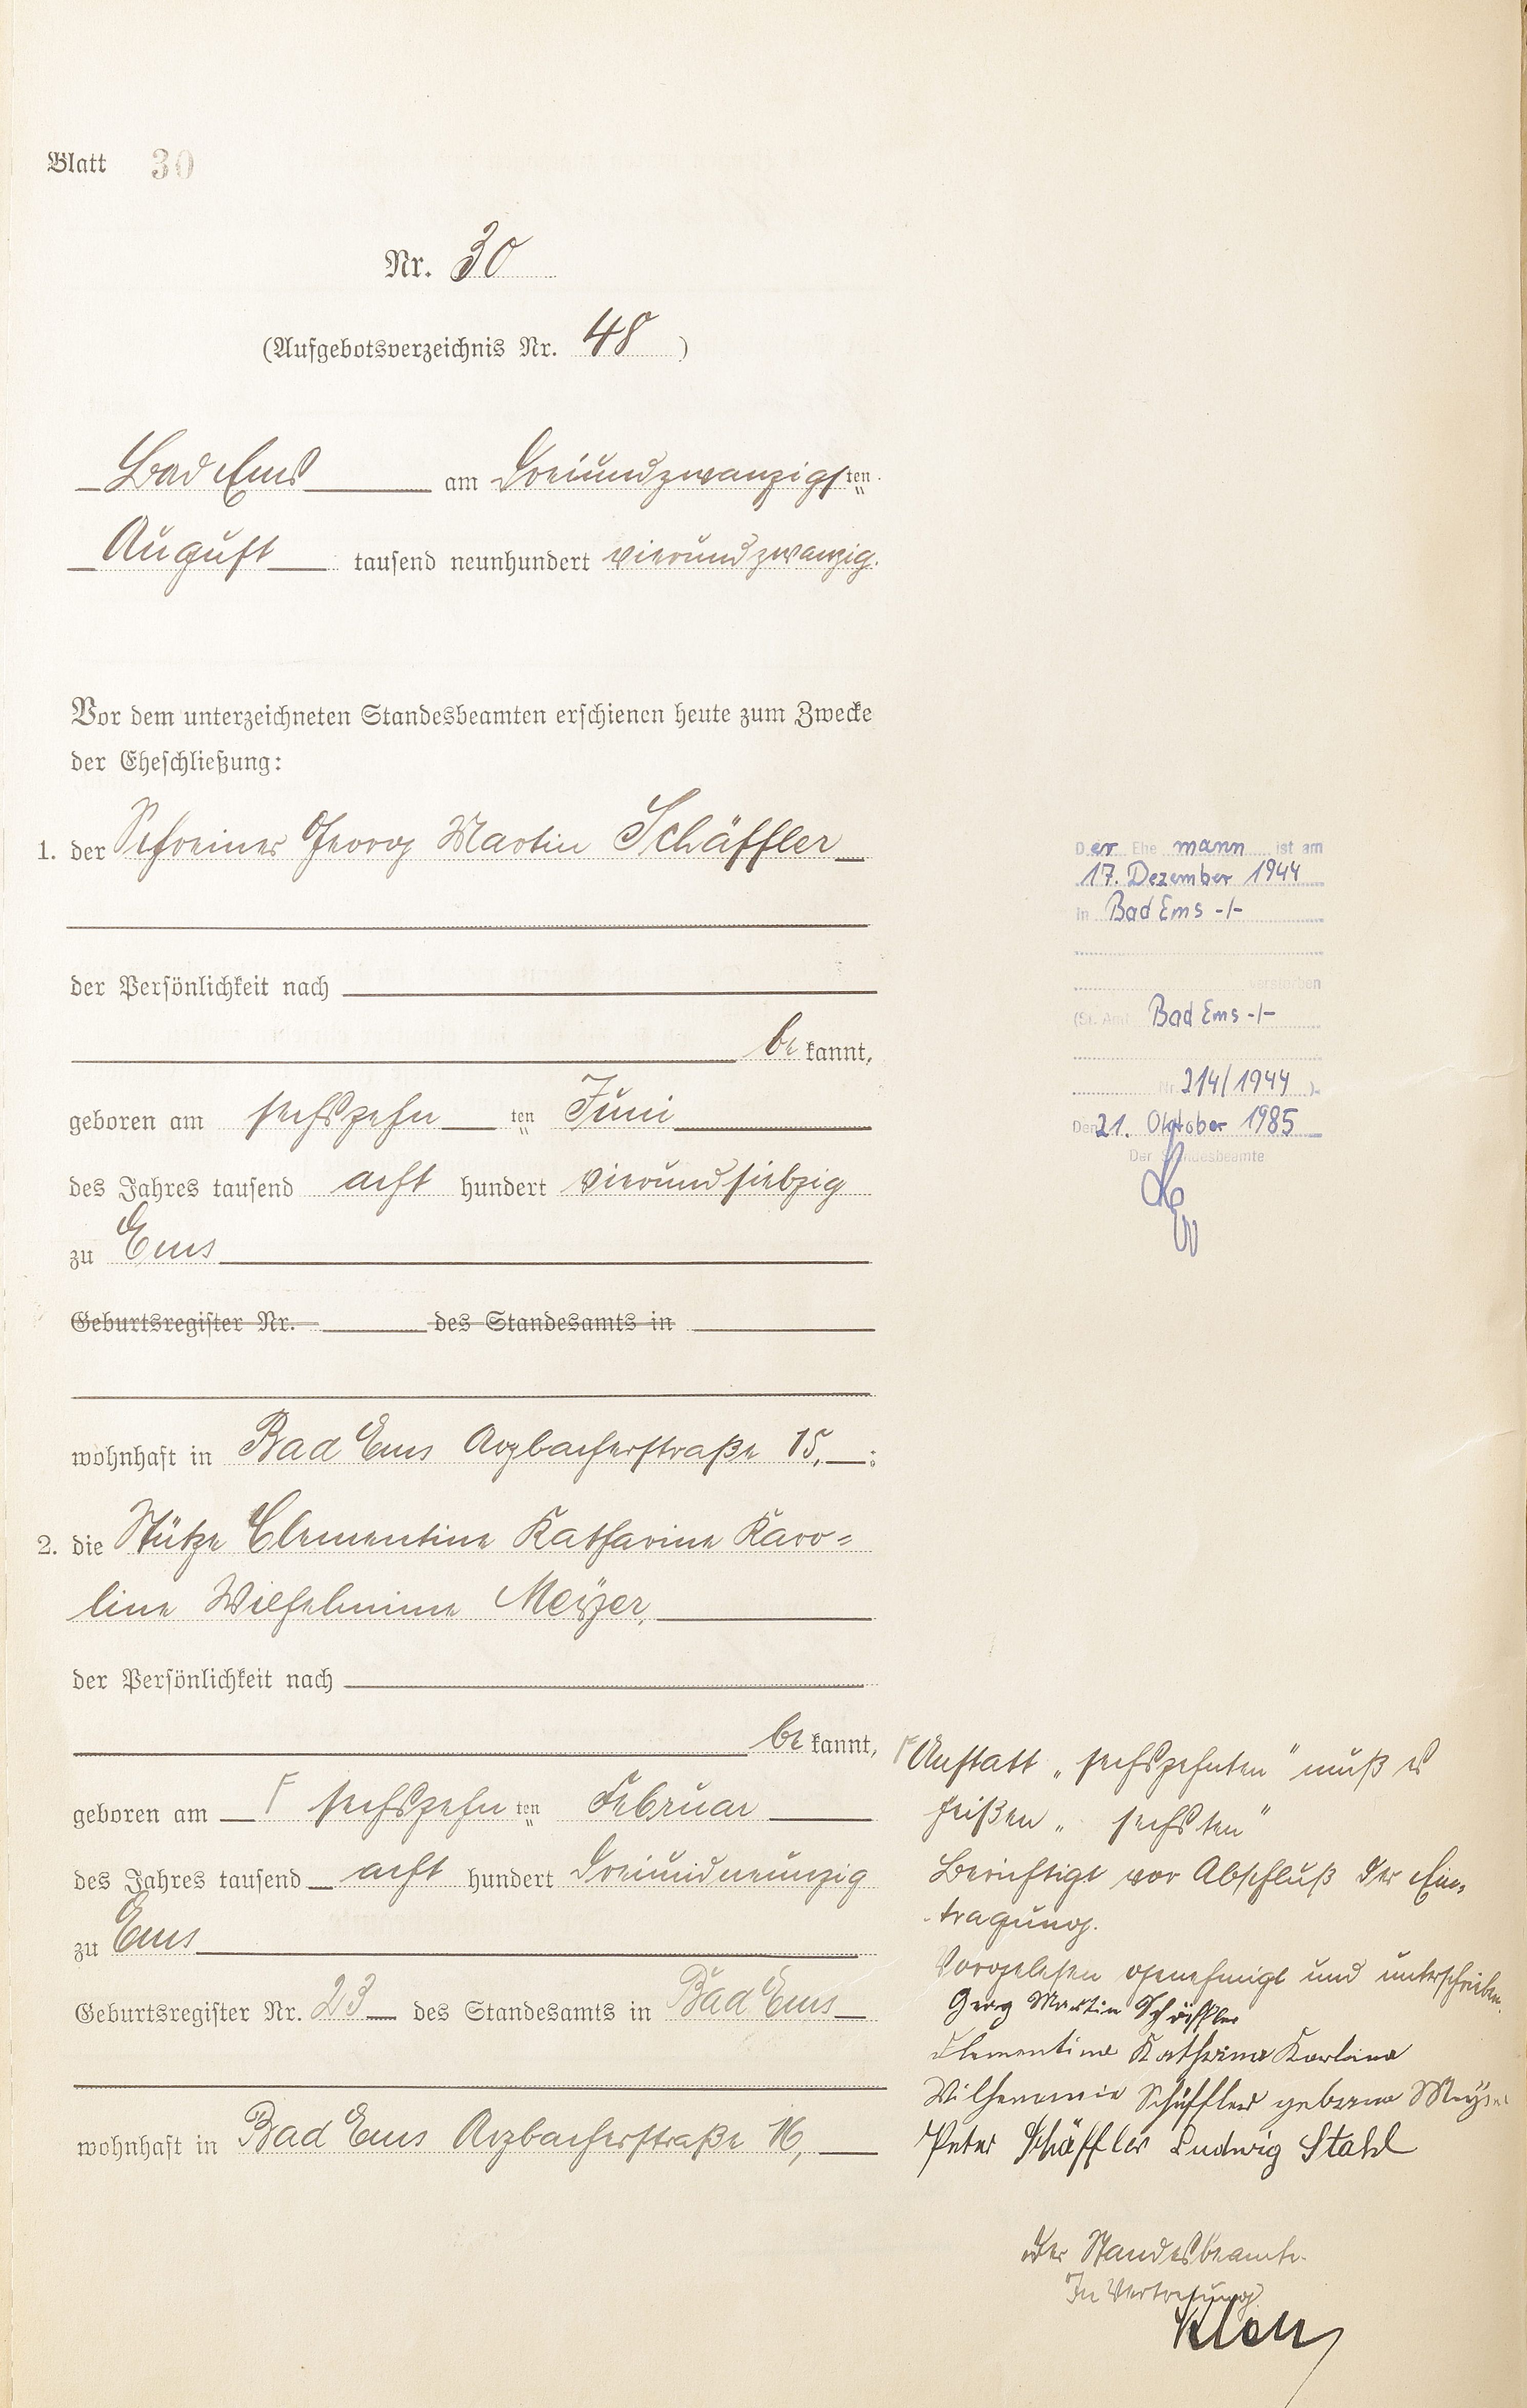 Blatt 30
Nr. 30
(Aufgebotsverzeichnis Nr. 48)
Bad Ems am dreiundzwanzigsten
August tausend neunhundert vierundzwanzig.
Vor dem unterzeichneten Standesbeamten erschienen heute zum Zwecke
der Eheschließung:
1. der Schreiner Georg Martin Schäffler
der Persönlichkeit nach
be kannt,
geboren am sechszehn ten Juni
des Jahres tausend acht hundert vierundsiebzig
zu Ems
Geburtsregister Nr. des Standesamts in
wohnhaft in Bad Ems Arzbacherstraße 15, ;
2. die Stütze Clementine Katharine Karo=
line Wilhelmine Meyer,
der Persönlichkeit nach
be kannt,
geboren am Γ sechszehn ten Februar
des Jahres tausend acht hundert dreiundneunzig
zu Ems
Geburtsregister Nr. 23 des Standesamts in Bad Ems
wohnhaft in Bad Ems Arzbacherstraße 16,
Der Ehe mann ist am
17. Dezember 1944
in Bad Ems -/-
verstorben
(St. Amt Bad Ems -/-
Nr. 214/1944 ).
Den 21. Oktober 1985
Der Standesbeamte
Γ Anstatt „sechszehnten" muß es
heißen „sechsten"
Berichtigt vor Abschluß der Ein-
tragung.
Vorgelesen genehmigt und unterschrieben.
Georg Martin Schäffler
Clementine Katharina Karlina
Wilhemmie Schäffler geborne Meyer
Peter Schäffler Ludwig Stahl
Der Standesbeamte.
In Vertretung